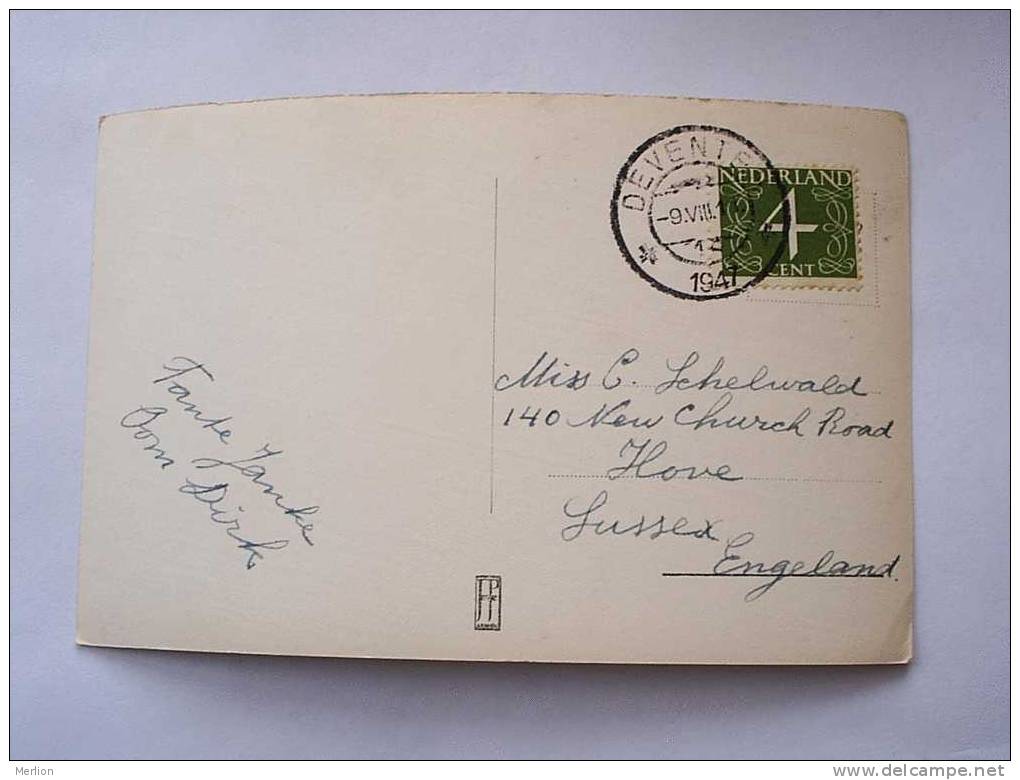 DEVENTE
-9.VIII.1
1947
NEDERLAND
4
CENT
Miss C. Schelwald
140 New Church Road
Hove
Sussex
Engeland.
Tante Janke
Oom Dirk
Merlion
delcampe.net